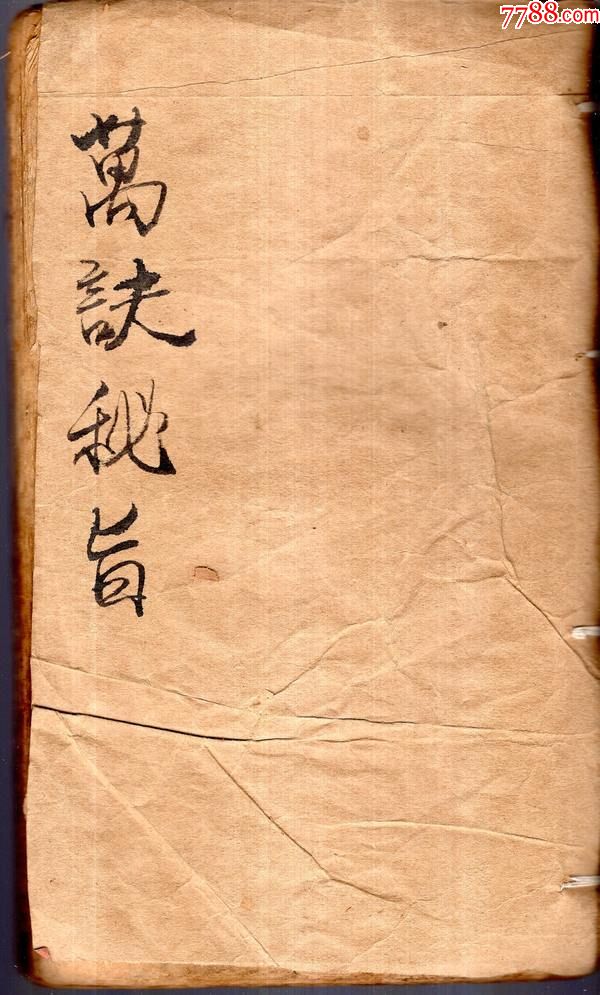 7788.com
萬訣秘旨